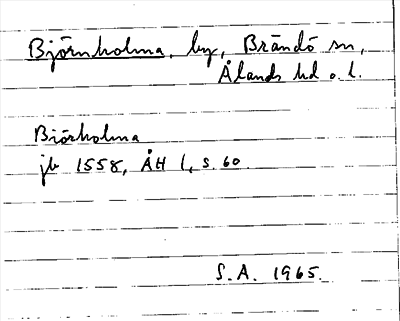 Björnholma, by, Brändö sn,
Ålands hd o. l.
Biörholma
jb 1558, ÅH 1, s. 60
S.A. 1965.